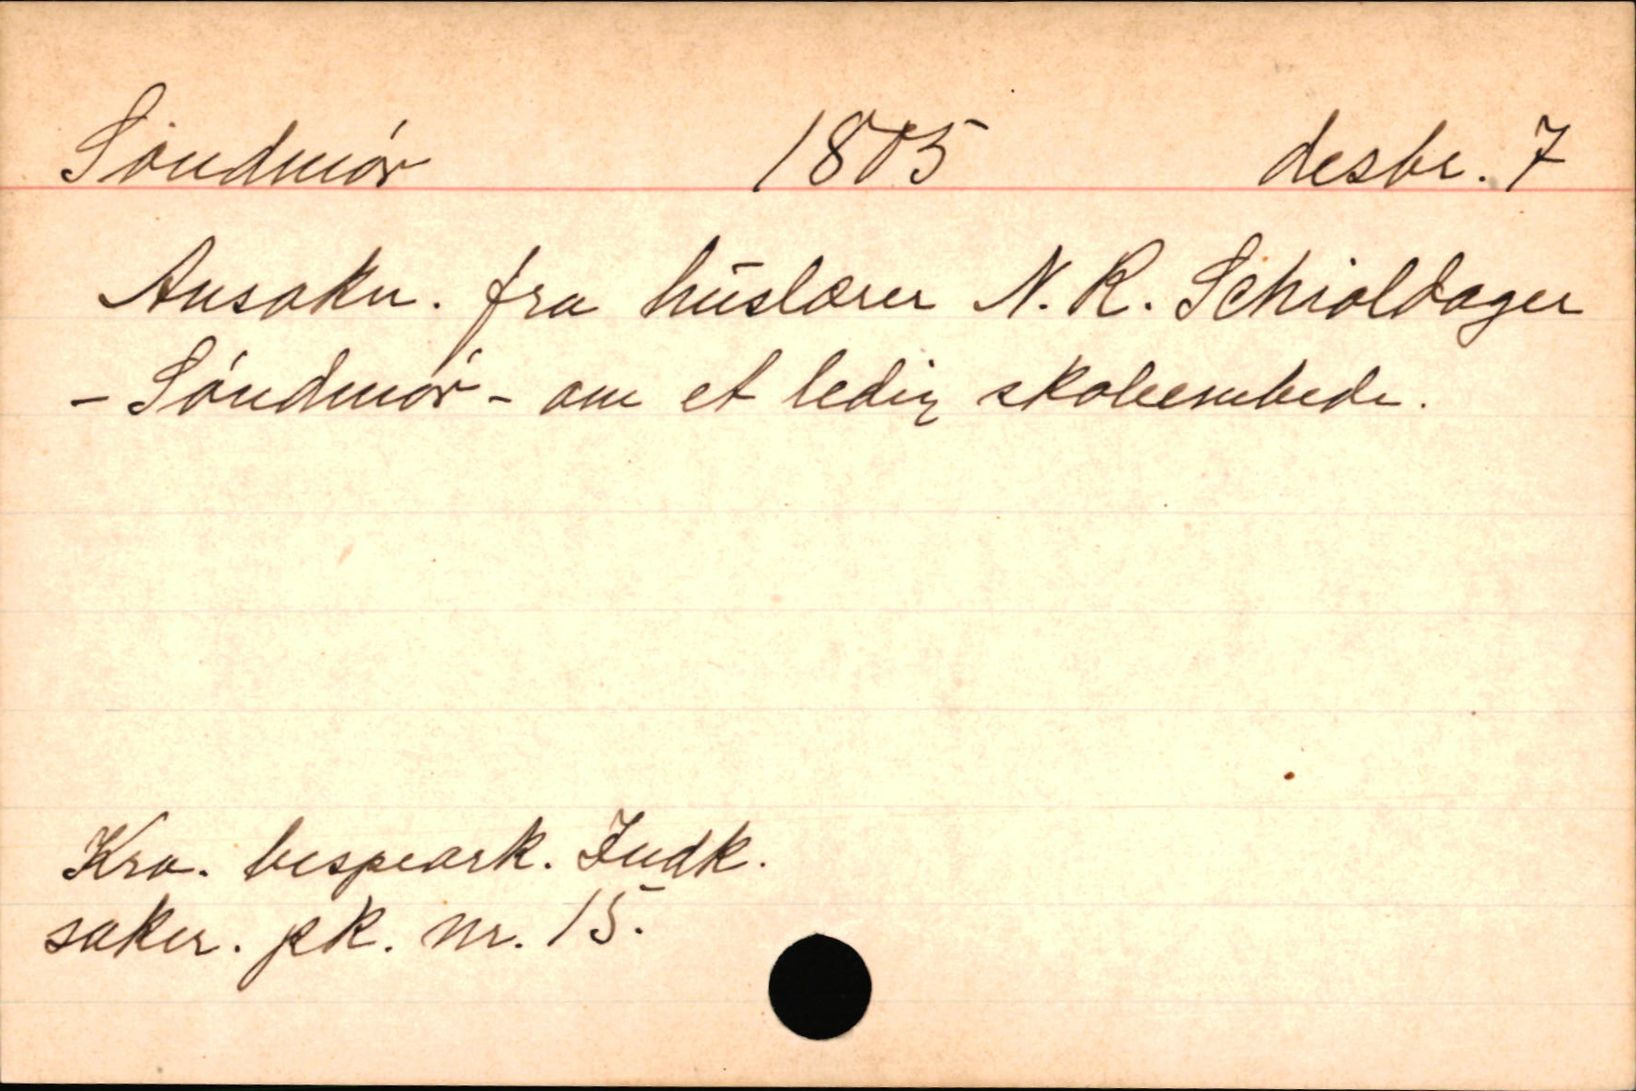 Söndmör 1805 desbr. 7
Ansøkn. fra huslærer N. R. Schioldager
- Söndmör - om et ledig skoleembede.
Kra. bispeark. Indk.
saker. pk. nr. 15.